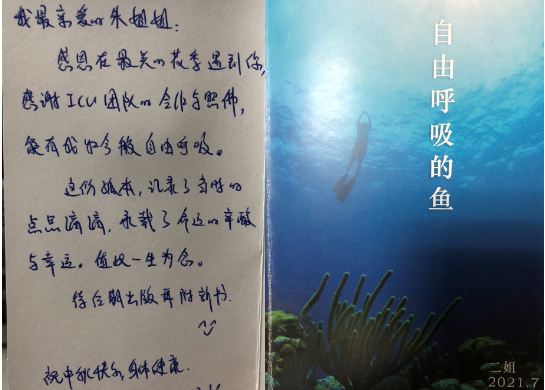 我最亲爱的朱姐姐:
感恩在最美的花季遇到你,
感谢ICU团队的合作与照佛,
能有我如今般自由呼吸。
这份孤本,记录了当时的
点点滴滴,承载了命运的辛酸
与幸运。值以一生为念。
待后期出版再附新书.
祝中秋快乐,身体健康.
自由呼吸的鱼
二姐
2021.7